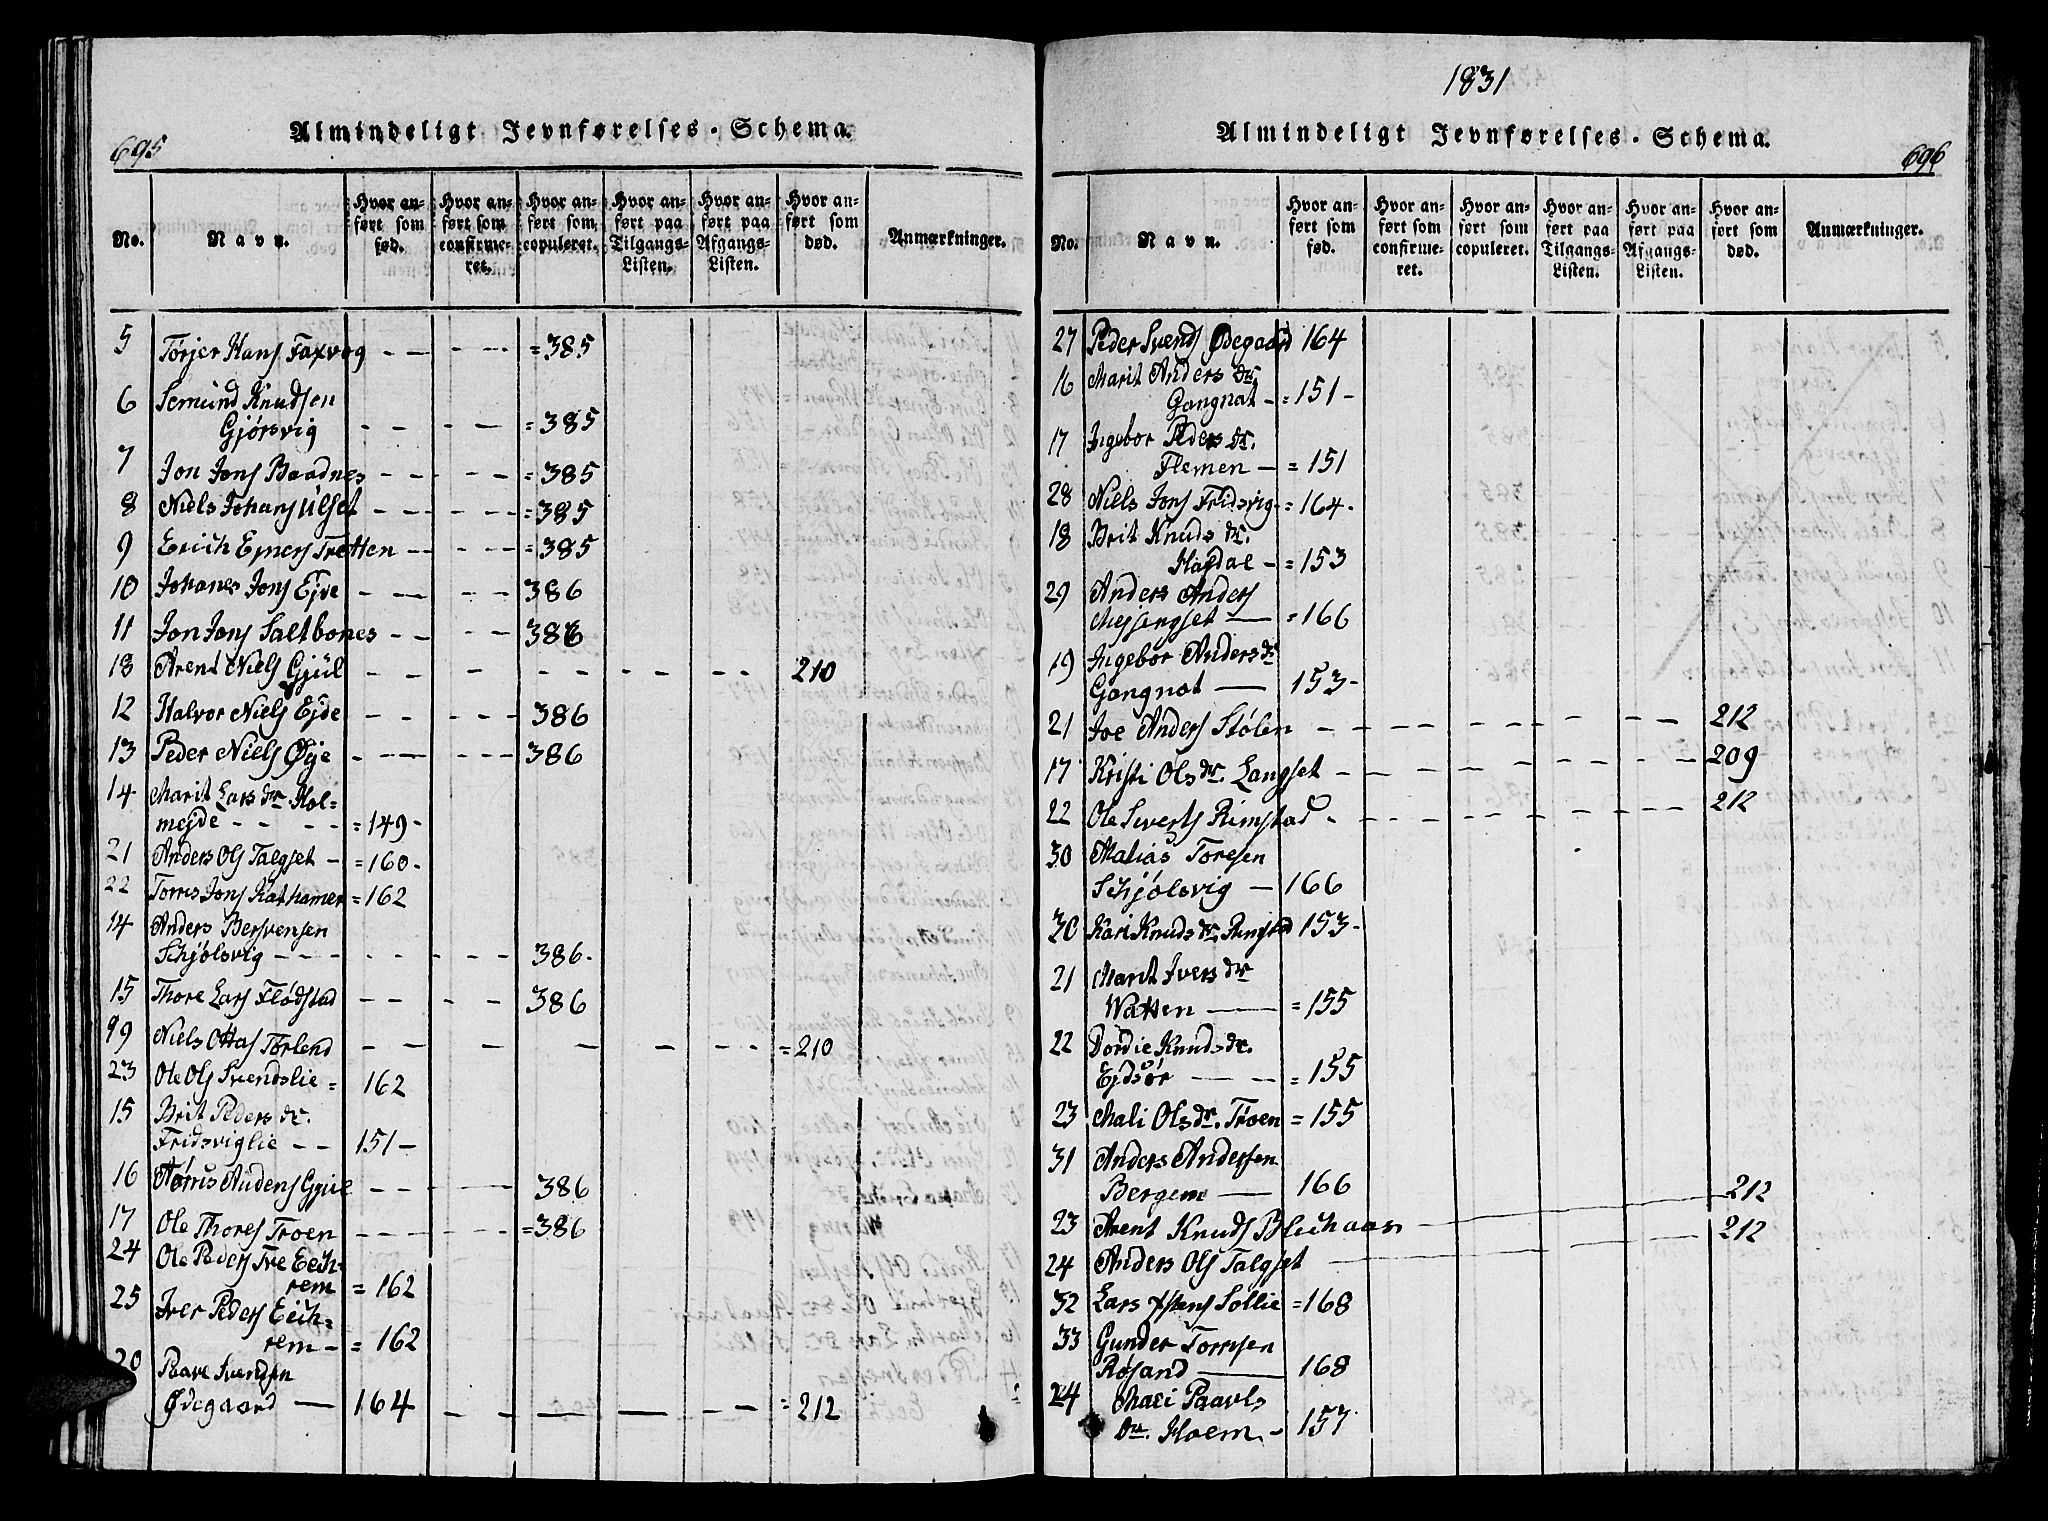 695
Almindeligt Jevnførelses-Schema.
No.
Navn.
Hvor anført som fød.
Hvor anført som confirmeret.
Hvor anført som copuleret.
Hvor anført paa Tilgangs-Listen.
Hvor anført paa Afgangs-Listen.
Hvor anført som død.
Anmærkninger.
5 Torjer Hans Faxvog - - - - - = 385
6 Semund Knudsen
Gjørsvig - - - - = 385
7 Jon Jons Baadnes - - - - = 385
8 Niels Johans Ulset - - - - = 385
9 Erich Ejners Tretten - - - - = 385
10 Johanes Jons Ejde - - - - 386
11 Jon Jons Saltbones - - - - 386
18 Arent Niels Gjül - - - - - - - - 210
12 Halvor Niels Ejde - - - - 386
13 Peder Niels Øye - - - - 386
14 Marit Lars dr. Hol=
mejde - - - - = 149 -
21 Anders Ols Talgset - = 160 -
22 Torris Jons Rathamer = 162
14 Anders Bersvensen
Schjølsvig - - - - - - 386 -
15 Thore Lars Flødstad - - - - 386
99 Niels Ottas Torlend - - - - - - - - = 210
23 Ole Ols Svendslie = 162
15 Brit Peders dr.
Fridsviglie - - 151 -
16 Tørris Audens Gjül - - - - 386
17 Ole Thores Troen - - - - = 386
24 Ole Peders Tre Eich=
rem = 162
25 Iver Peders Eich=
rem - = 162
20 Paave Svendsen
Ødegaard — 164 - - - - - - = 212
1831
Almindeligt Jevnførelses-Schema.
696
No.
Navn.
Hvor anført som fød.
Hvor anført som confirmeret.
Hvor anført som copuleret.
Hvor anført paa Tilgangs-Listen.
Hvor anført paa Afgangs-Listen.
Hvor anført som død.
Anmærkninger.
27 Peder Svends Ødegaard 164
16 Marit Anders dr.
Gangnat - = 151 -
17 Ingebor Peders dr.
Flemen — = 151
28 Niels Jons Fridsvig = 164 -
18 Brit Knuds dr.
Hagdal - = 153
29 Anders Anders
Mejsingset — = 166
19 Ingebor Anders dr
Gangnat — 153 -
21 Joe Anders Stølen - - - - - - - - 212
17 Kristi Ols dr. Langset - - - - - - - - 209
22 Ole Siverts Rimstad - - - - - - - - 212
30 Malias Toresen
Schjølsvig — 166
20 Kari Knuds dr Rimstad 153 -
21 Marit Ivers dr
Watten — = 155
22 Dordie Knuds dr.
Ejdsør — - = 155
23 Mali Ols dr. Troen = 155
31 Anders Andersen
Bergem — 166
23 Arent Knuds Blichaas - 212
24 Anders Ols Talgset - 212
32 Lars Istens Sollie = 168
33 Gunder Torresen
Røsand — 168
24 Mari Paavls
dr. Hoem - 157